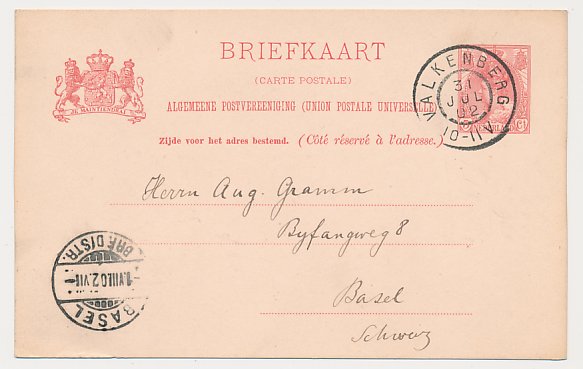 BRIEFKAART
(CARTE POSTALE)
ALGEMEENE POSTVEREENIGING (UNION POSTALE UNIVERSELLE)
Zijde voor het adres bestemd. (Côté réservé à l'adresse.)
JE MAINTIENDRAI
VALKENBERG
31
JUL
02
10-11V
NEDERLAND
Herrn Aug. Gramm
Byfangweg 8
Basel
Schweiz
BRF. DISTR.
1.VIII.02.VII
BASEL